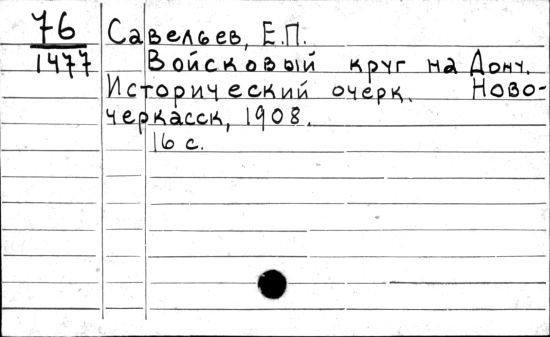 76 Савельев, Е.П.
1477 Войсковый круг на Дону.
Исторический очерк. Ново-
черкасск, 1908.
16 с.